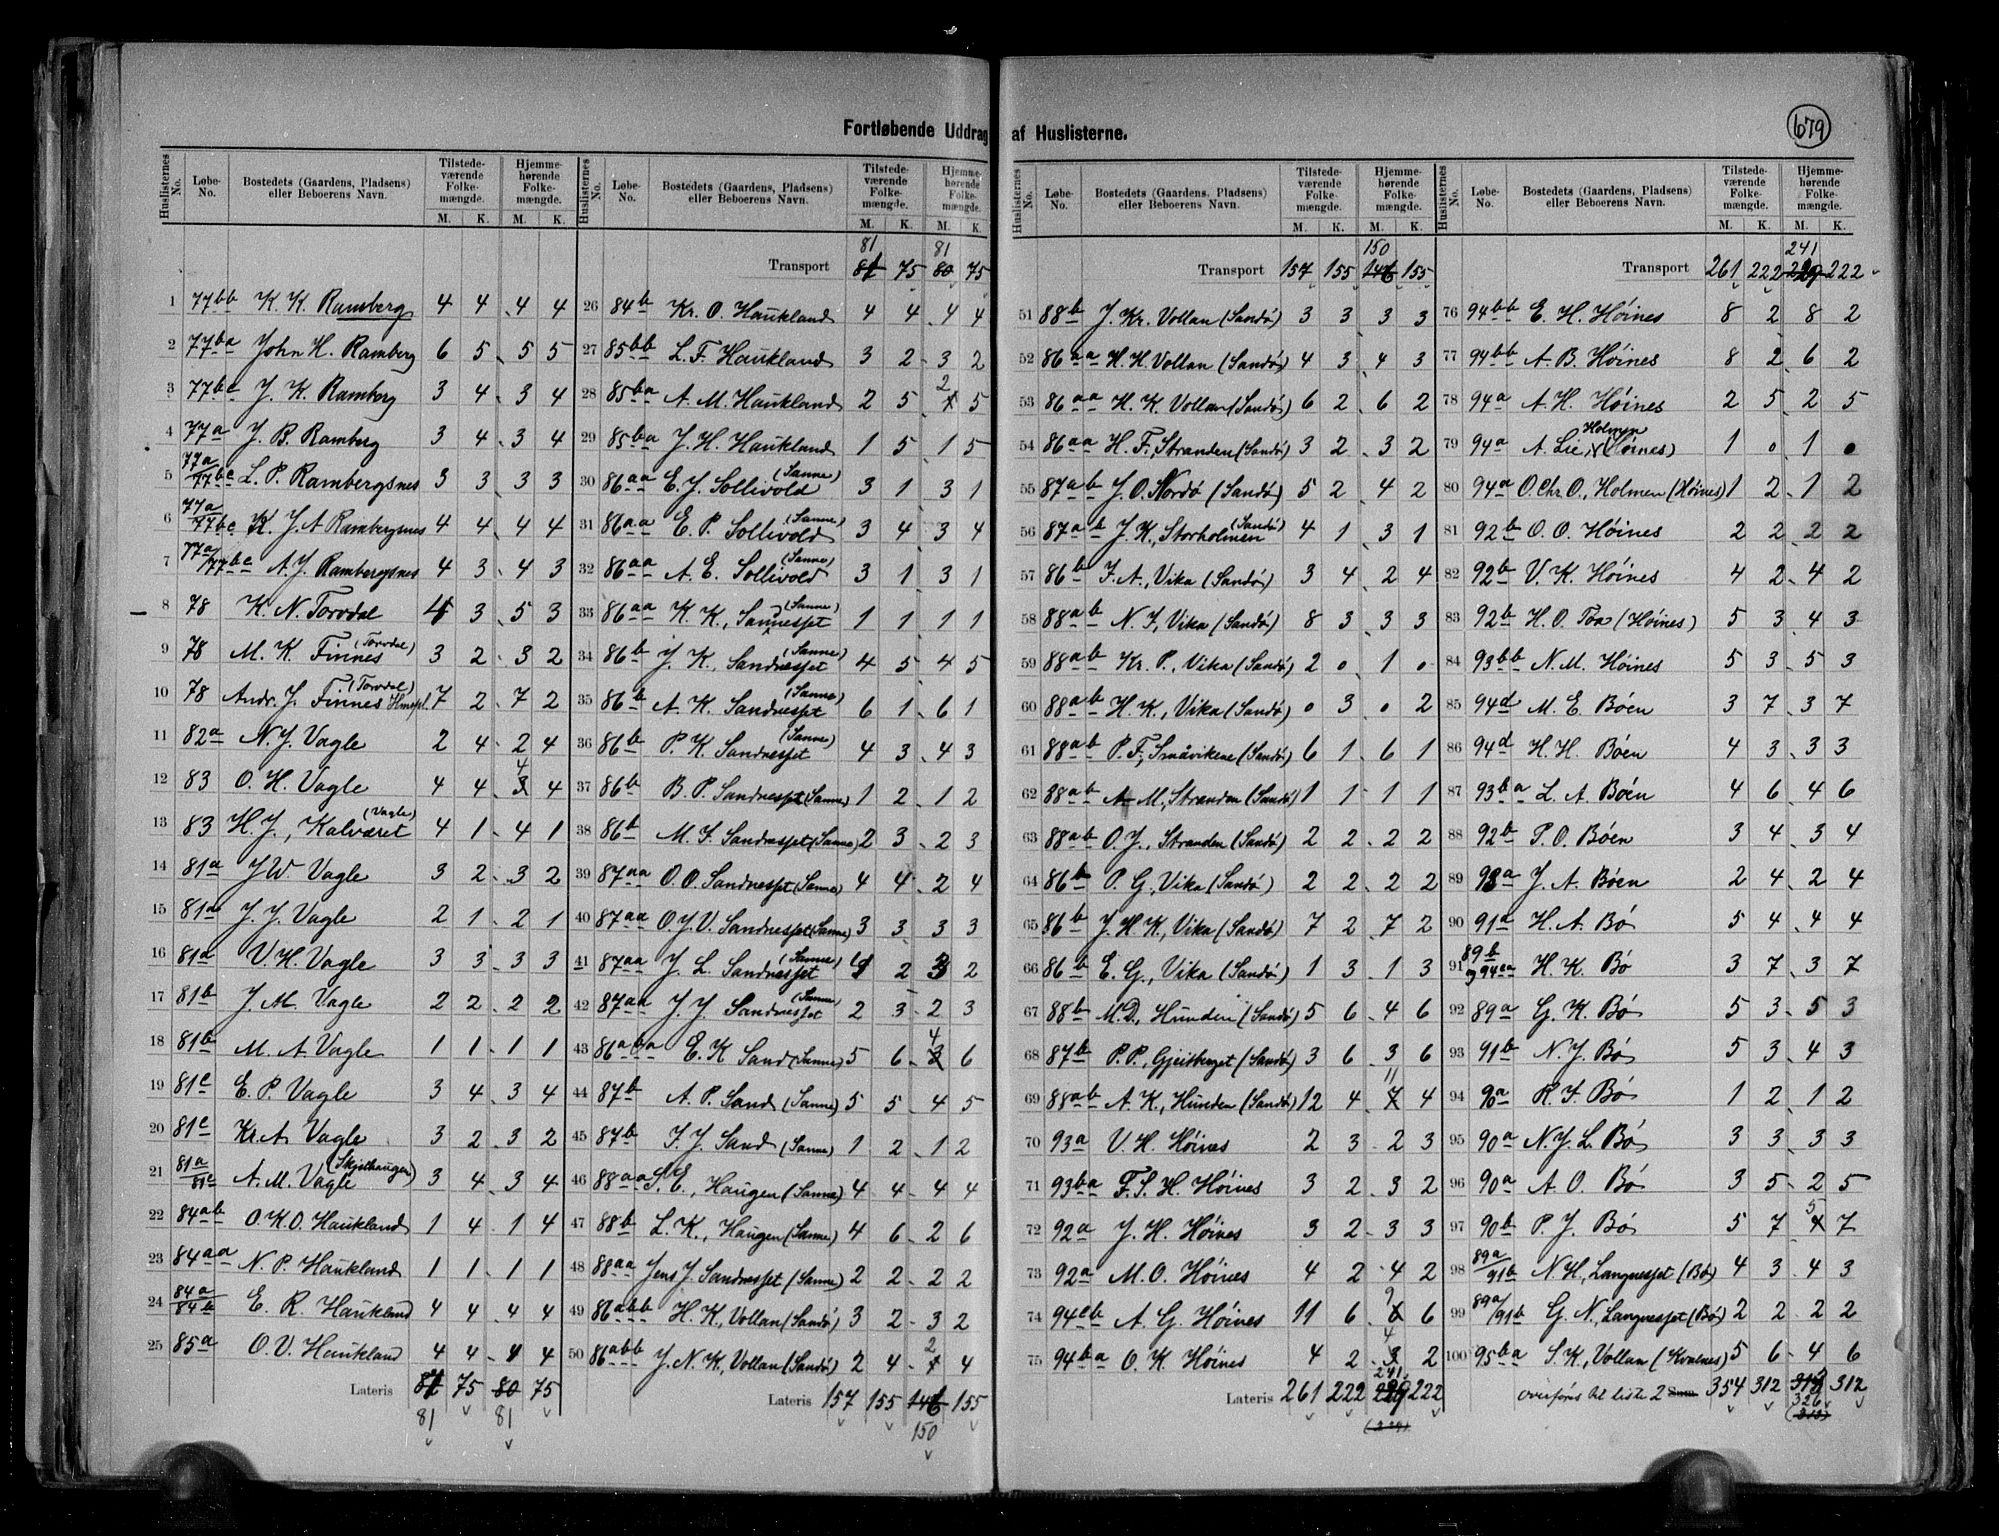 Fortløbende Uddrag af Huslisterne.
679
Huslisternes No. Løbe-No. Bostedets (Gaardens, Pladsens) eller Beboerens Navn. Tilstedeværende Folkemængde. M. K. Hjemmehørende Folkemængde. M. K.
1 77bb K. K. Ramberg 4 4 4 4
2 77ba John H. Ramberg 6 5 5 5
3 77bc J. K. Ramberg 3 4 3 4
4 77a J. B. Ramberg 3 4 3 4
5 77a/77bc L. P. Rambergsnes 3 3 3 3
6 77a/77bc K. J. A Rambergsnes 4 4 4 4
7 77a/77bc A. J. Rambergsnes 4 3 4 3
8 78 K. N. Torvdal 4 3 5 3
9 78 M. K. Finnes (Torvdal) 3 2 3 2
10 78 Andr. J. Finnes (Torvdal) 7 2 7 2
11 82a N. J. Vagle 2 4 2 4
12 83 O. H. Vagle 4 4 3 4 4
13 83 H. J., Kalværet (Vagle) 4 1 4 1
14 81a J W Vagle 3 2 3 2
15 81d J. J. Vagle 2 1 2 1
16 81d V. H. Vagle 3 3 3 3
17 81b J. M. Vagle 2 2 2 2
18 81b M. A. Vagle 1 1 1 1
19 81c E. P. Vagle 3 4 3 4
20 81c Kr. A. Vagle 3 2 3 2
21 81a/81c A. M. Vagle (Skjelhaugen) 3 4 3 4
22 84ab O. K. O. Haukland 1 4 1 4
23 84aa N. P. Haukland 1 1 1 1
24 84a/84b E. R. Haukland 4 4 4 4
25 85a O. V. Haukland 4 4 4 4
Lateris 81 75 80 75
81 81
Huslisternes No. Løbe-No. Bostedets (Gaardens, Pladsens) eller Beboerens Navn. Tilstedeværende Folkemængde. M. K. Hjemmehørende Folkemængde. M. K.
81 81
Transport 81 75 80 75
26 84b Kr. O. Haukland 4 4 4 4
27 85bb L. F. Haukland 3 2 3 2
28 85ba A. M. Haukland 2 5 1 2 5
29 85ba J. H. Haukland 1 5 1 5
30 86aa E. J. Sollivold (Sanne) 3 1 3 1
31 86aa E. P. Sollivold (Sanne) 3 4 3 4
32 86aa A. E. Sollivold (Sanne) 3 1 3 1
33 86aa K. K., Sannesset (Sanne) 1 1 1 1
34 86b J. K., Sandnesset (Sanne) 4 5 4 5
35 86b A. K. Sandnesset (Sanne) 6 1 6 1
36 86b P. K. Sandnesset (Sanne) 4 3 4 3
37 86b B. P. Sandnesset (Sanne) 1 2 1 2
38 86b M. S. Sandnesset (Sanne) 2 3 2 3
39 87aa O. O. Sandnesset (Sanne) 4 4 2 4
40 87aa O. J. V. Sandnesset (Sanne) 3 3 3 3
41 87aa J. L. Sandnesset (Sanne) 2 3 2
42 87aa J. J. Sandnesset (Sanne) 2 3 2 3
43 86aba E. K. Sand (Sanne) 5 6 3 4 6
44 87b A. P. Sand (Sanne) 5 5 4 5
45 87b J. J. Sand (Sanne) 1 2 1 2
46 88aa S. E., Haugen (Sanne) 4 4 4 4
47 88b L. K., Haugen (Sanne) 4 6 2 6
48 88aa Jens J. Sandnesset (Sanne) 2 2 2 2
49 86abb H. K., Vollan (Sandø) 3 2 3 2
50 86abb J. N. K., Vollan (Sandø) 2 4 1 2 4
Lateris 157 155 146 155
150
Huslisternes No. Løbe-No. Bostedets (Gaardens, Pladsens) eller Beboerens Navn. Tilstedeværende Folkemængde. M. K. Hjemmehørende Folkemængde. M. K.
150
Transport 157 155 146 155
51 88b J. Kr. Vollan (Sandø) 3 3 3 3
52 86aa H. H. Vollan (Sandø) 4 3 4 3
53 86aa H. K. Vollan (Sandø) 6 2 6 2
54 86aa H. F., Stranden (Sandø) 3 2 3 2
55 87ab J. O. Nordø (Sandø) 5 2 4 2
56 87ab J. K., Storholmen (Sandø) 4 1 3 1
57 86b J. A., Vika (Sandø) 3 4 2 4
58 88ab N. J., Vika (Sandø) 8 3 3 3
59 88ab Kr. P., Vika (Sandø) 2 0 1 0
60 88ab H. K., Vika (Sandø) 0 3 0 2
61 88ab P. F., Småvikene (Sandø) 6 1 6 1
62 88ab A. M., Stranden (Sandø) 1 1 1 1
63 88ab O. J., Stranden (Sandø) 2 2 2 2
64 86b P. G., Vika (Sandø) 2 2 2 2
65 86b J. H. K., Vika (Sandø) 7 2 7 2
66 86b E. G., Vika (Sandø) 1 3 1 3
67 88b M. D., Hunden (Sandø) 5 6 4 6
68 87b P. P., Gjeitberget (Sandø) 3 6 3 6
69 88ab A. K., Hunden (Sandø) 12 4 7 11 4
70 93a V. H. Höines 2 3 2 3
71 93ba F. S. H. Höines 3 2 3 2
72 92a J. H. Höines 3 2 3 3
73 92a M. O. Höines 4 2 4 2
74 94cb A. G. Höines 11 6 6 9 6
75 94ba O. K. Höines 4 2 3 4 2
241
Lateris 261 222 229 222
(239)
Huslisternes No. Løbe-No. Bostedets (Gaardens, Pladsens) eller Beboerens Navn. Tilstedeværende Folkemængde. M. K. Hjemmehørende Folkemængde. M. K.
241
Transport 261 222 229 222
76 94bb E. H. Höines 8 2 8 2
77 94bb A. B. Höines 8 2 6 2
78 94a A. H. Höines 2 5 2 5
79 94a A. Lie, Holmen (Höines) 1 0 1 0
80 94a O. Chr. O., Holmen (Höines) 1 2 1 2
81 92b O. O. Höines 2 2 2 2
82 92b V. K. Höines 4 2 4 2
83 92b H. O. Toa (Höines) 5 3 4 3
84 93bb N. M. Höines 5 3 5 3
85 94d M. E. Böen 3 7 3 7
86 94d H. H. Böen 4 3 3 3
87 93ba L. A. Böen 4 6 4 6
88 92b P. O. Böen 3 4 3 4
89 93a J. A. Böen 2 4 2 4
90 91a H. A. Bö 5 4 4 4
91 89b 94ca H. K. Bö 3 7 3 7
92 89a G. K. Bö 5 3 5 3
93 91b N. J. Bö 5 3 4 3
94 90a R. J. Bö 1 2 1 2
95 90a N. J. L. Bö 3 3 3 3
96 90a A. O. Bö 3 5 2 5
97 90b P. J. Bö 5 7 4 5 7
98 89a/91b N. H., Langnesset (Bö) 4 3 4 3
99 89a/91b G. N., Langnesset (Bö) 2 2 2 2
100 95ba S. K., Vollan (Kvalnes) 5 6 4 6
overføres til liste 2 Sum 354 312 313 312
326
(313)